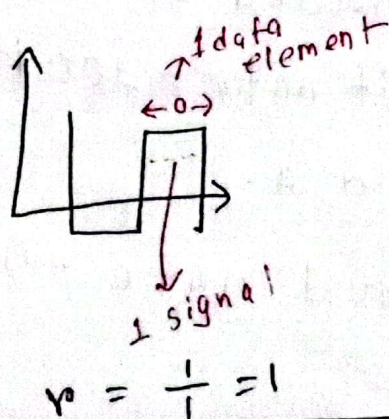 1 data
element
0
1 signal
r = 1/1 = 1